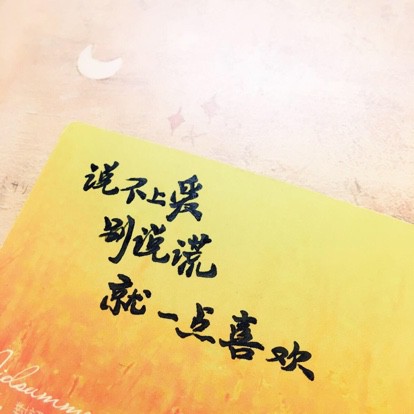 说不上爱
别说谎
就一点喜欢
Midsumme